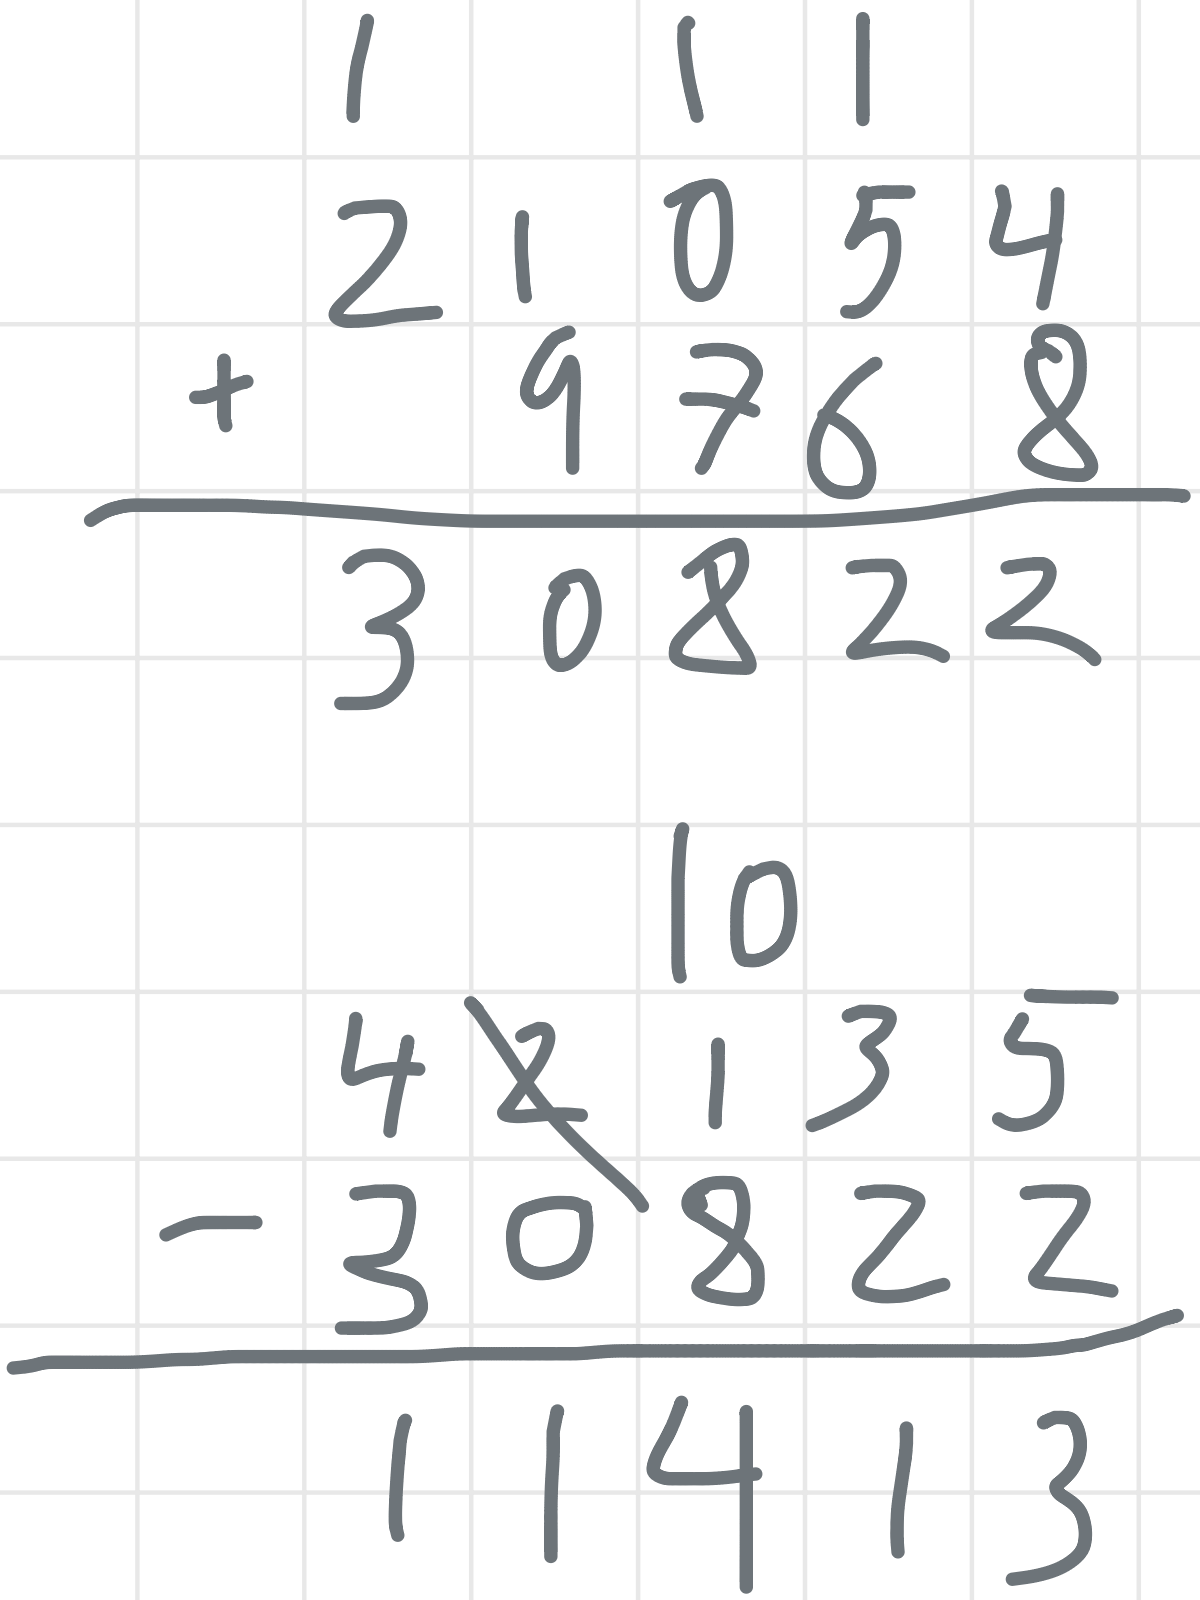 1 1 1
2 1 0 5 4
+ 9 7 6 8
3 0 8 2 2
10
4 2 1 3 5
- 3 0 8 2 2
1 1 4 1 3